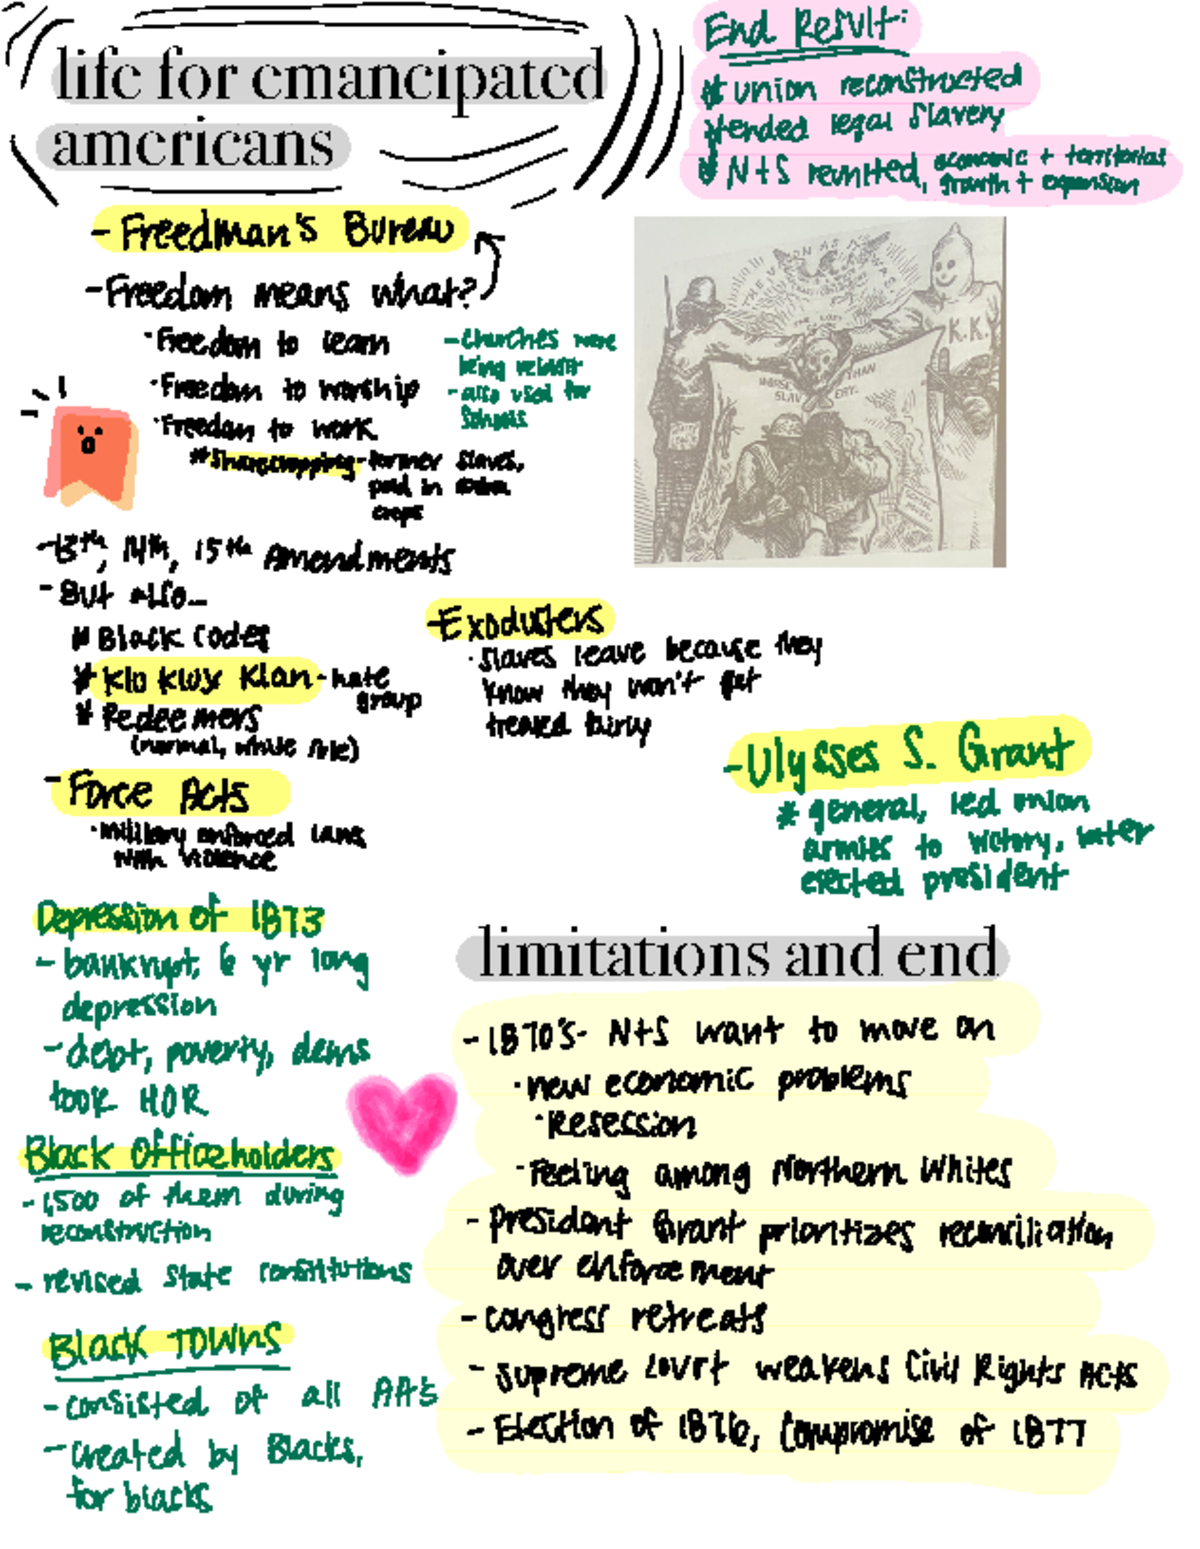 life for emancipated
americans
End Result:
* union reconstructed
* ended legal slavery
* N+S reunited, economic + territorial
growth + expansion
- Freedman's Bureau
- Freedom means what?
· Freedom to learn
· Freedom to worship
· Freedom to work
* Sharecropping - former slaves,
paid in
crops
- churches were
being rebuilt
- also used for
schools
THE UNION AS IT WAS
THE LOST
WORSE THAN
SLAVERY.
K.K.
- 13th, 14th, 15th Amendments
- But also...
* Black Codes
* Klu Klux Klan - hate
group
* Redeemers
(normal, white
- Force Acts
· military enforced laws
with violence
- Exodusters
· slaves leave because they
know they won't get
treated fairly
- Ulysses S. Grant
* general, led union
armies to victory, later
elected president
Depression of 1873
- bankrupt, 6 yr long
depression
- debt, poverty, dems
took HOR
Black Officeholders
- 1,500 of them during
reconstruction
- revised state constitutions
Black Towns
- consisted of all AA's
- created by Blacks,
for blacks
limitations and end
- 1870's - N+S want to move on
· new economic problems
· Resession
· Feeling among Northern Whites
- President Grant prioritizes reconciliation
over enforcement
- congress retreats
- supreme court weakens Civil Rights Acts
- Election of 1876, Compromise of 1877